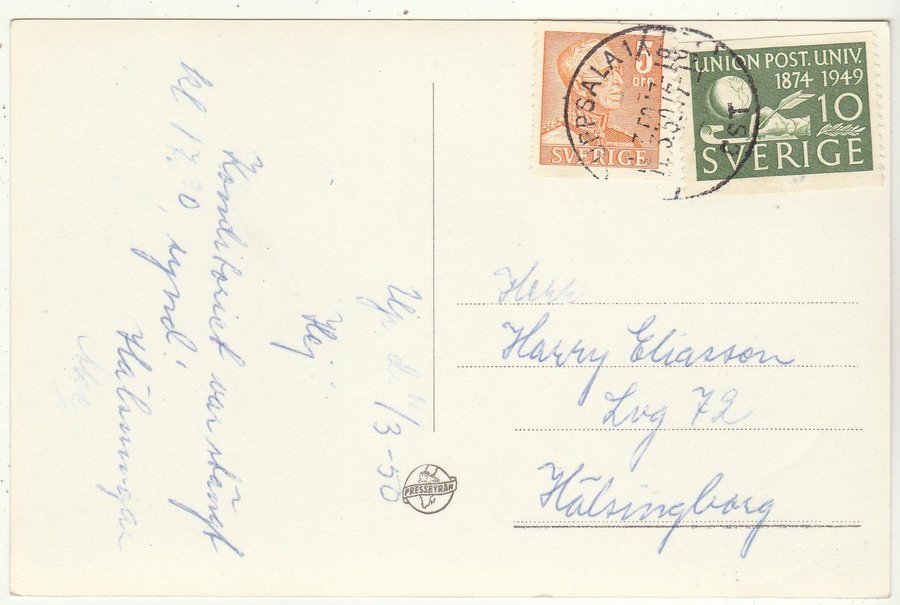 Up d. 11/3-50
Hej
Konditoriet var stängt
kl 17.30, synd!
Hälsningar
Åke
5
öre
SVERIGE
UPPSALA 1
LST
UNION POST. UNIV.
1874 1949
10
SVERIGE
Herr
Harry Eliasson
Lvg 72
Hälsingborg
PRESSBYRÅN